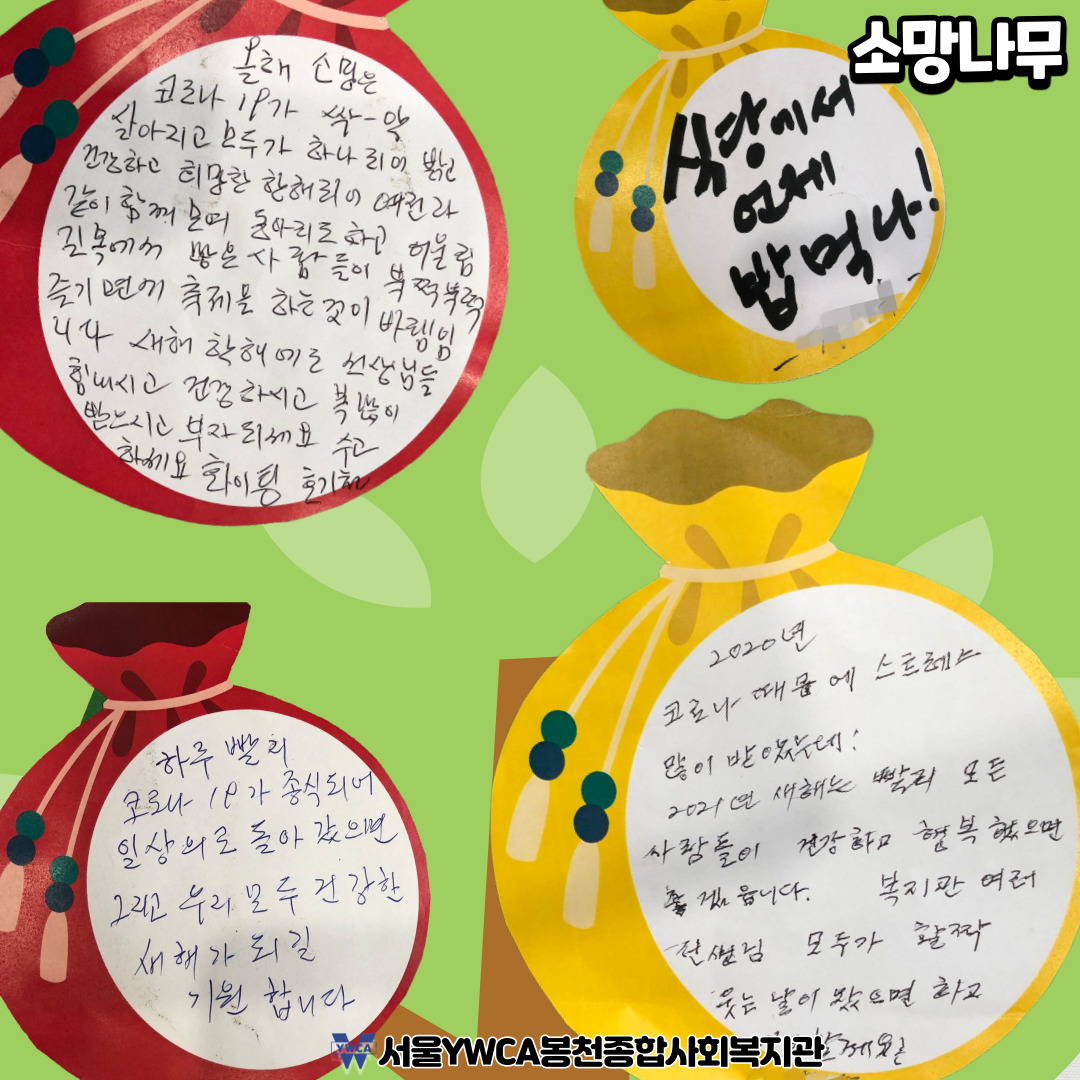 소망나무
올해 소망은
코로나 19가 싹-악
살아지고 모두가 하나리이 밝고
건강하고 희망한 한해리이 여권라
같이 함께 모며 동아리도 하고 어울림
길목에서 많은 사람들이 북쩍북쩍
즐기면에 축제를 하는것이 바램임
니다 새해 학해에도 선생님들
힘내시고 건강하시고 복많이
받느시고 부자되세요 수고
하세요 화이팅
식당에서
언제
밥먹나!
하루 빨리
코로나 19가 종식되어
일상의로 돌아 갔으면
그리고 우리 모두 건강한
새해가 되길
기원 합니다
2020년
코로나 때문에 스트레스
많이 받았는데!
2021년 새해는 빨리 모든
사람들이 건강하고 행복했으면
좋겠읍니다. 복지관 여러
선생님 모두가 활짝
웃는 날이 왔으면 하고
서울YWCA봉천종합사회복지관
YWCA